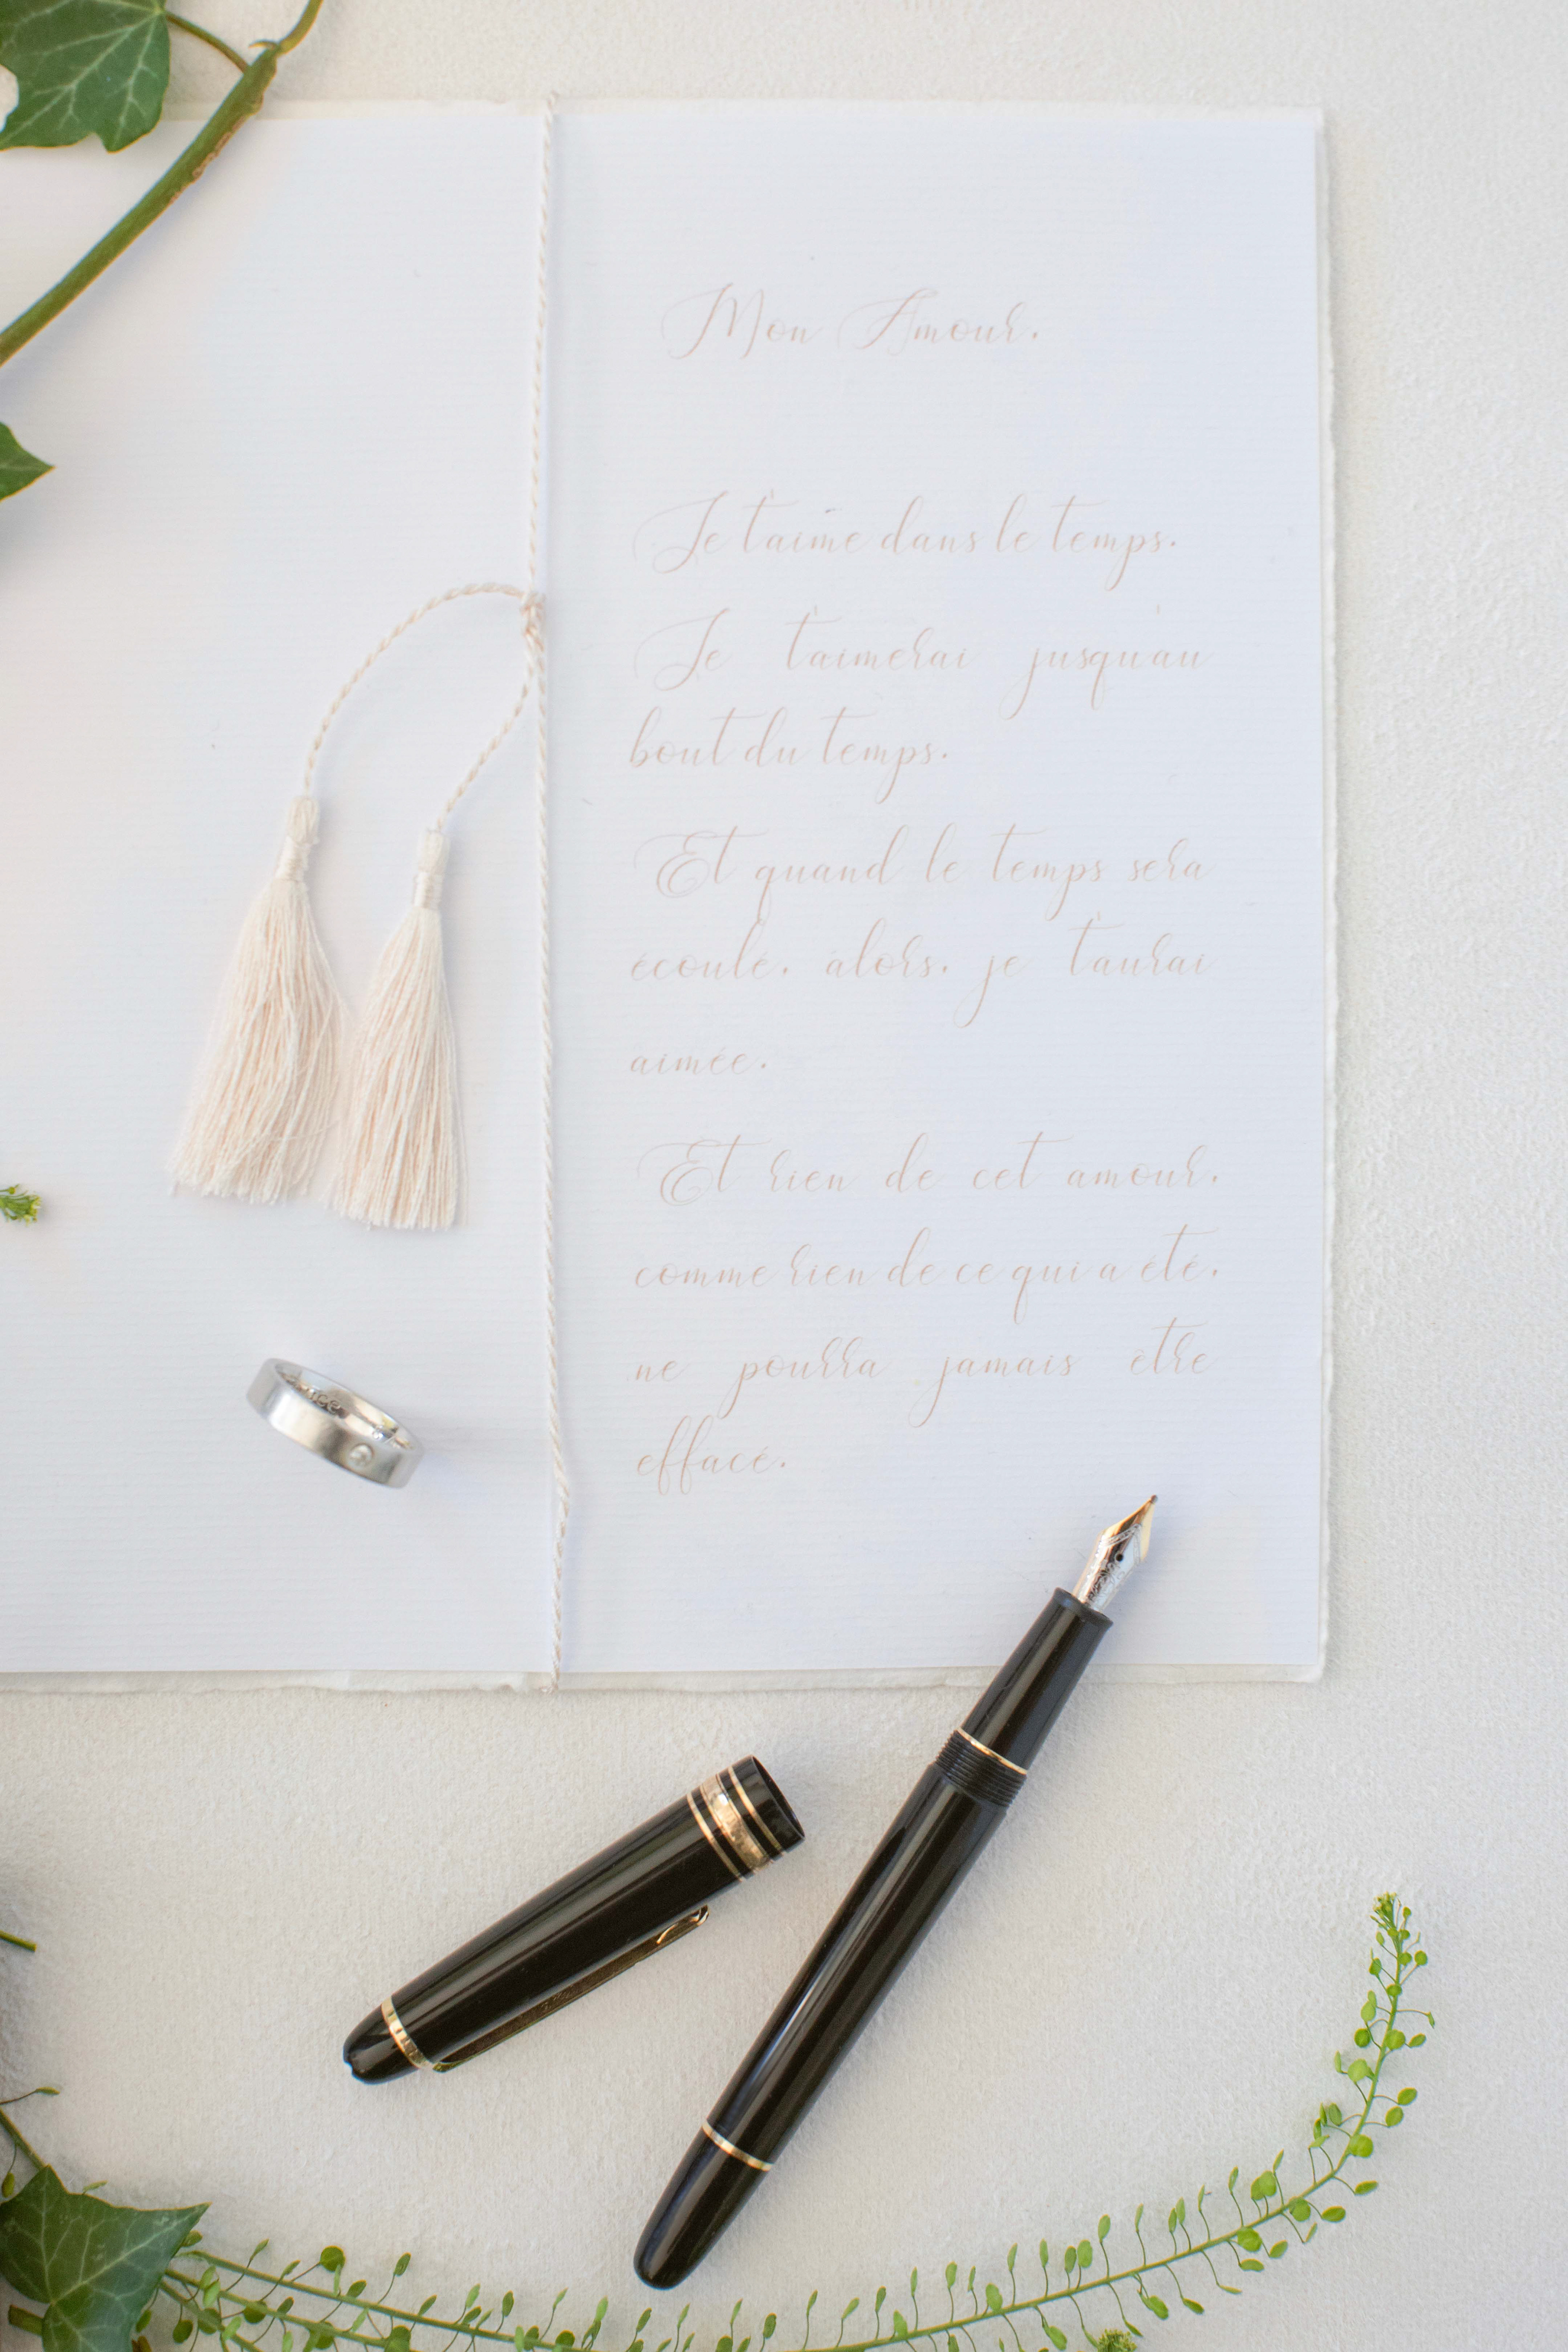 Mon Amour,
Je t'aime dans le temps.
Je t'aimerai jusqu'au
bout du temps.
Et quand le temps sera
écoulé, alors, je t'aurai
aimée.
Et rien de cet amour,
comme rien de ce qui a été,
ne pourra jamais être
effacé.